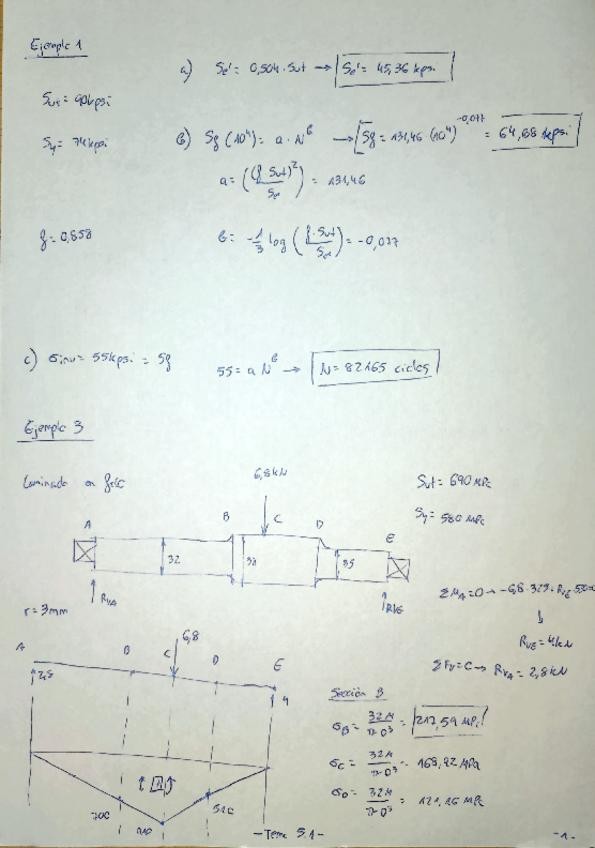 Ejemplo 1
a) Se' = 0,504 · Sut → Se' = 45,36 kpsi
Sut = 90 kpsi
Sy = 74 kpsi
b) Sf (10⁴) = a · N^b → Sf = 131,46 (10⁴)^-0,077 = 64,68 kpsi
a = ((f Sut)² / Se) = 131,46
f = 0,858
b = -1/3 log (f · Sut / Se) = -0,077
c) σinv = 55 kpsi = Sf
55 = a N^b → N = 82165 ciclos
Ejemplo 3
Laminado en frío
6,8 kN
Sut = 690 MPa
Sy = 580 MPa
A B C D E
32 38 35
RVA RVE
r = 3 mm
ΣMA = 0 → -6,8 · 325 + RVE ·
RVE = 4 kN
ΣFy = 0 → RVA = 2,8 kN
A B C D E
6,8
2,8
4
Sección B
σB = 32M / πD³ = 217,59 MPa
σC = 32M / πD³ = 168,92 MPa
σD = 32M / πD³ =
- Tema 5.1 -
- 1 -